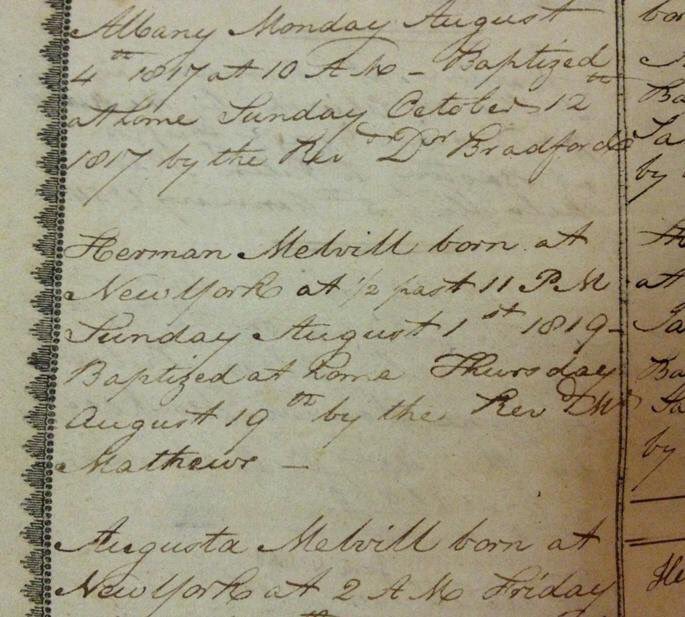 Albany Monday August
4th 1817 at 10 A M – Baptized
at home Sunday October 12th
1817 by the Revd Dr Bradford
Herman Melvill born at
New York at 1/2 past 11 P.M
Sunday August 1st 1819 –
Baptized at home Thursday
August 19th by the Revd Mr
Mathews –
Augusta Melvill born at
New York at 2 A M Friday
bo
Ba
Sa
by
at
Ja
Ba
Sa
by
He